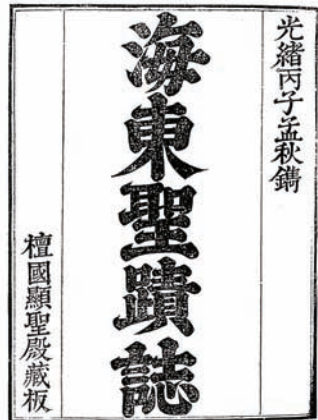 光緒丙子孟秋鐫
海東聖蹟誌
檀國顯聖殿藏板